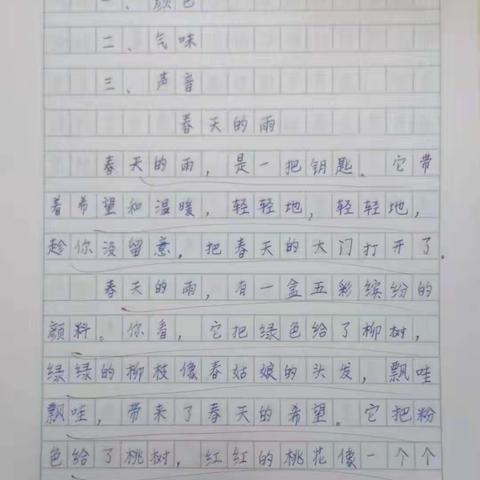 一、颜色
二、气味
三、声音
春天的雨
春天的雨，是一把钥匙。它带
着希望和温暖，轻轻地，轻轻地，
趁你没留意，把春天的大门打开了。
春天的雨，有一盒五彩缤纷的
颜料。你看，它把绿色给了柳树，
绿绿的柳枝像春姑娘的头发，飘哇
飘哇，带来了春天的希望。它把粉
色给了桃树，红红的桃花像一个个